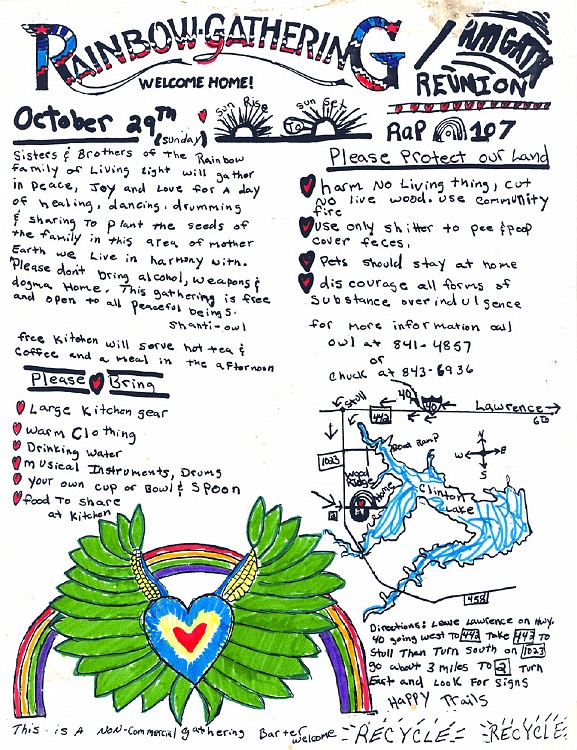 RAINBOW·GATHERING /
WELCOME HOME!
REUNION
October 29th
(sunday)
Sun Rise
sun set
RaP 107
Sisters & Brothers of the Rainbow
family of Living Light will gather
in Peace, Joy and Love for a day
of healing, dancing, drumming
& sharing To plant the seeds of
the family in this area of mother
Earth we Live in harmony with.
Please don't bring alcohol, weapons &
dogma Home. This gathering is free
and open to all peaceful beings.
Shanti-owl
free Kitchen will serve hot tea &
Coffee and a meal in the afternoon
Please Bring
Large Kitchen gear
Warm Clothing
Drinking Water
Musical Instruments, Drums
Your own cup or Bowl & Spoon
food To share
at Kitchen
Please Protect our Land
harm No Living thing, cut
No live wood. use community
fire
Use only shitter to pee & poop
cover feces.
Pets should stay at home
discourage all forms of
Substance over indulgence
for more information call
owl at 841-4857
or
Chuck at 843-6936
Stull
40
40
442
Lawrence
1023
Boat Ramp
N
W E
S
Wood
Ridge
Home
Clinton
Lake
2
458
Directions: Leave Lawrence on Hwy.
40 going west To 442 Take 442 To
Stull Then Turn south on 1023
go about 3 miles To 2 Turn
East and Look For signs
Happy Trails
This is A Non-Commercial gathering Barter welcome RECYCLE RECYCLE